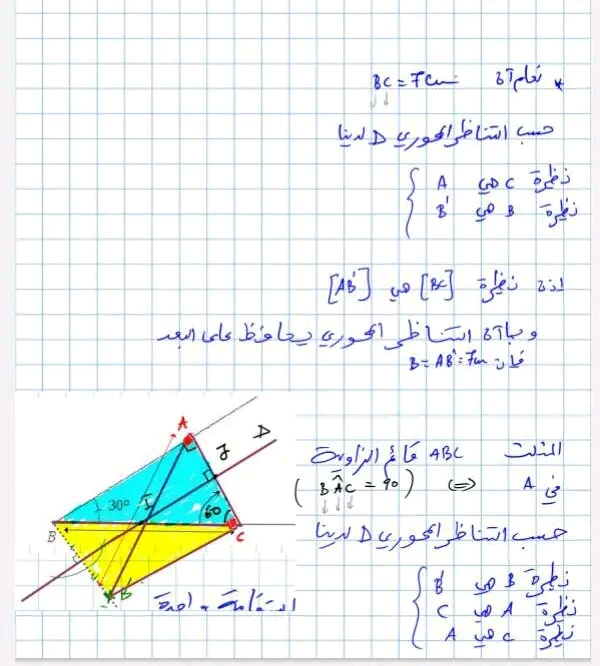 * نعلم أن BC = 7cm
حسب التناظر المحوري D لدينا
نظيرة C هي A
نظيرة B هي B'
إذن نظيرة [BC] هي [AB']
وبما أن التناظر المحوري يحافظ على البعد
فإن B = AB' = 7cm
المثلث ABC قائم الزاوية
في A ⇔ (BÂC = 90)
حسب التناظر المحوري D لدينا
نظيرة B هي B'
نظيرة A هي C
نظيرة C هي A
A
D
J
30°
I
60
B
C
B'